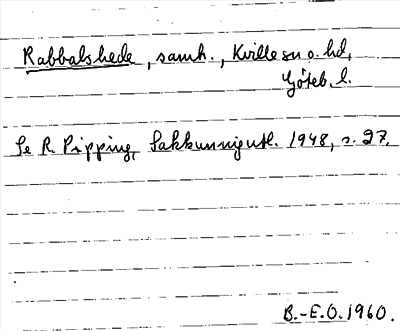 Rabbalshede, samh., Kville sn o. hd,
Göteb. l.
Se R. Pipping, Sakkunnigutl. 1948, s. 27.
B.-E.O. 1960.